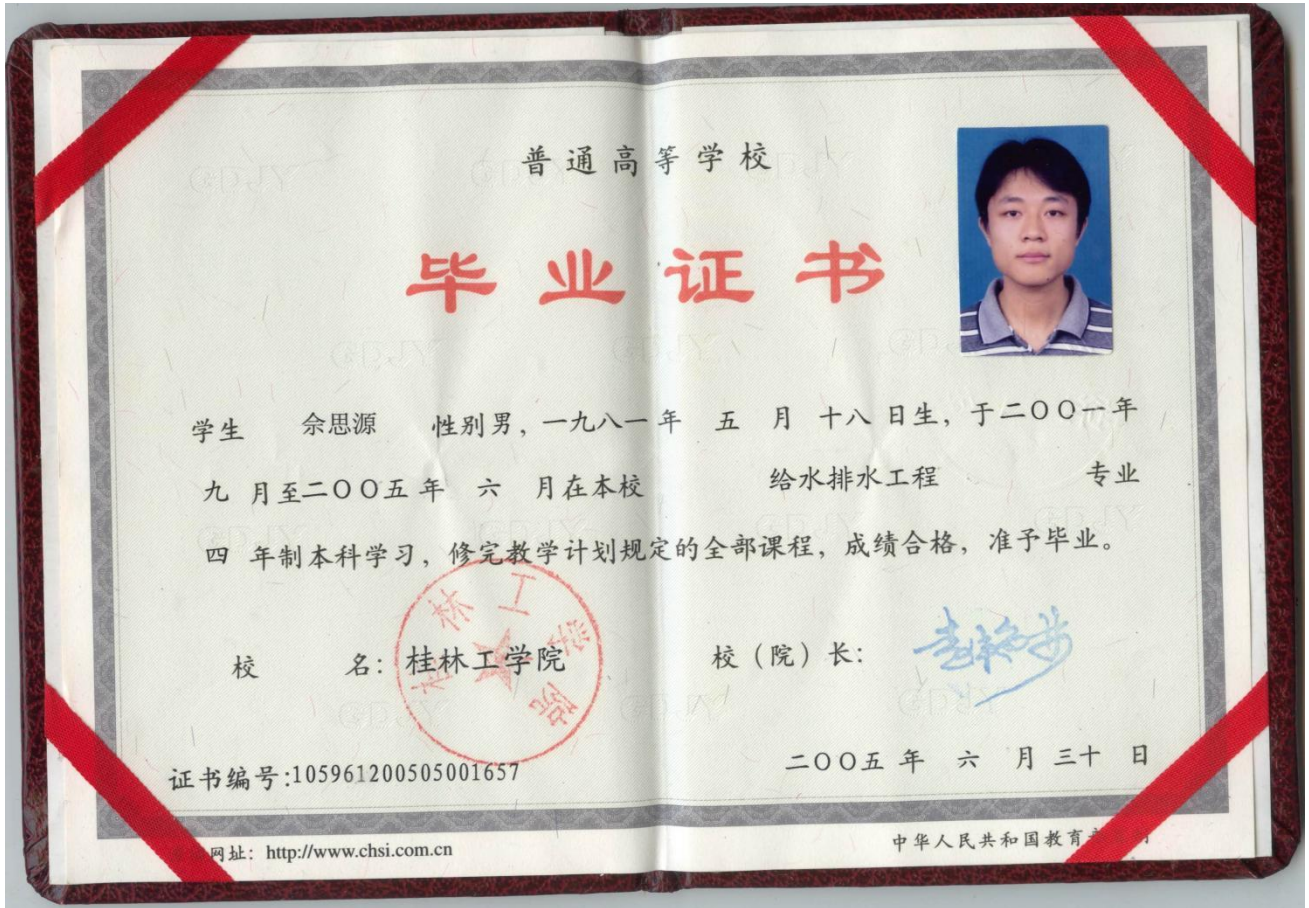 普通高等学校
毕业证书
学生 佘思源 性别男，一九八一年 五 月 十八 日生，于二〇〇一年
九 月至二〇〇五年 六 月在本校 给水排水工程 专业
四 年制本科学习，修完教学计划规定的全部课程，成绩合格，准予毕业。
校 名：桂林工学院 校（院）长：
桂林工学院
二〇〇五年 六 月 三十 日
证书编号:105961200505001657
网址：http://www.chsi.com.cn
中华人民共和国教育